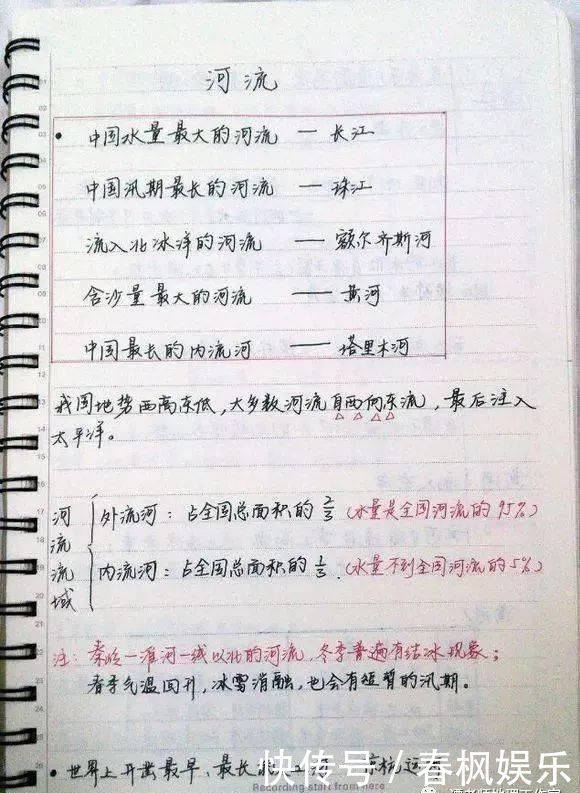 河流
• 中国水量最大的河流 — 长江
中国汛期最长的河流 — 珠江
流入北冰洋的河流 —— 额尔齐斯河
含沙量最大的河流 —— 黄河
中国最长的内流河 —— 塔里木河
我国地势西高东低,大多数河流自西向东流,最后注入
太平洋。
河流流域
外流河:占全国总面积的 2/3 (水量是全国河流的95%)
内流河:占全国总面积的 1/3 (水量不到全国河流的5%)
注:秦岭—淮河一线以北的河流,冬季普遍有结冰现象;
春季气温回升,冰雪消融,也会有短暂的汛期。
• 世界上开凿最早、最长
快传号 / 春枫娱乐
Recording start from here